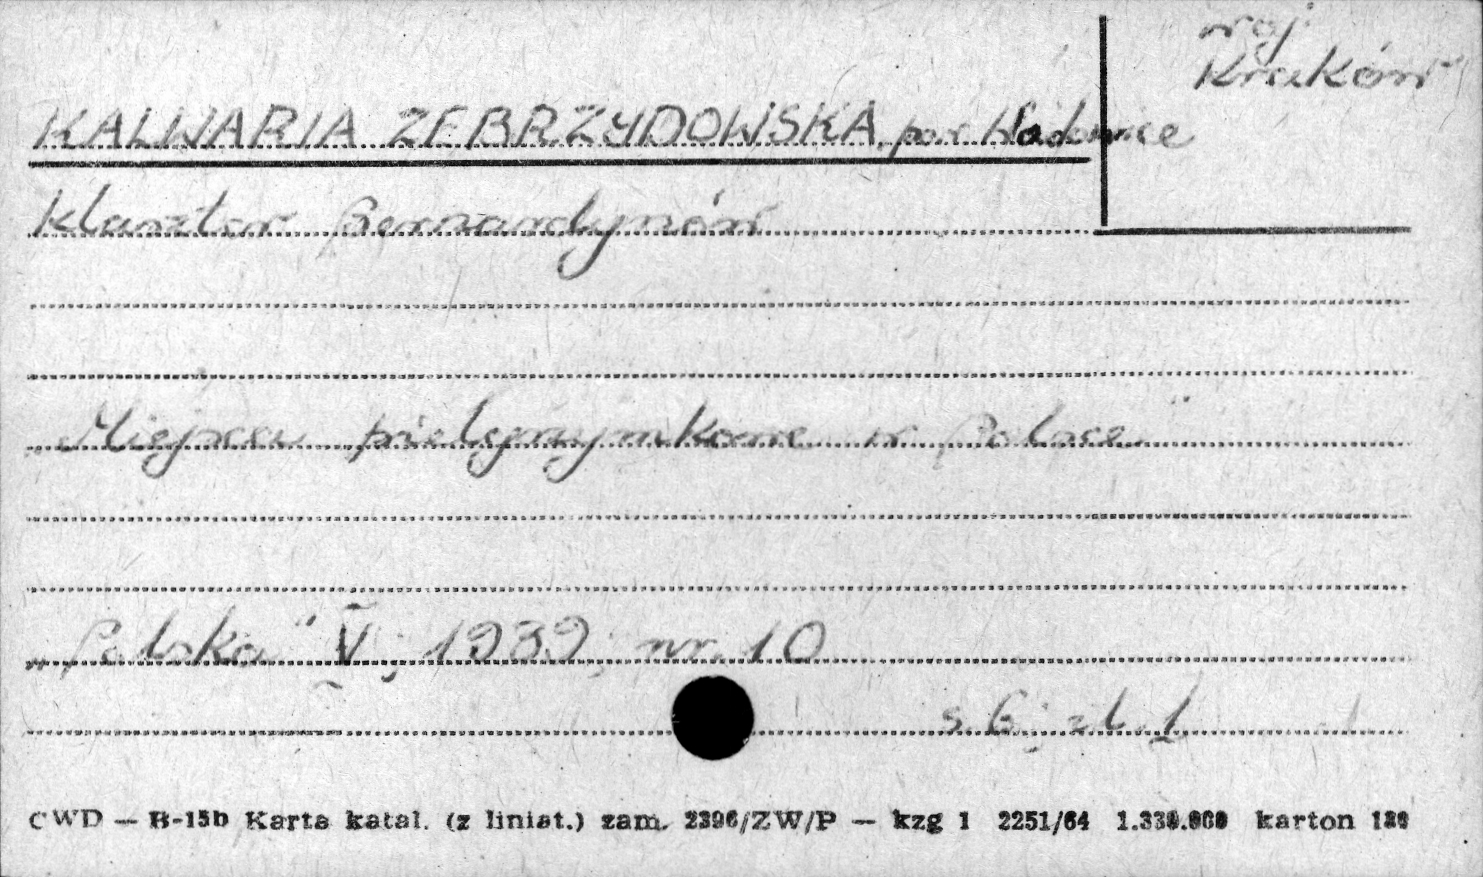 woj.
Kraków
KALWARIA ZEBRZYDOWSKA, pow. Wadowice
Klasztor Bernardynów
„Miejsca pielgrzymkowe w Polsce"
„Polska" V; 1939; nr. 10
s. 6; zł. 1
CWD — B-15b Karta katal. (z liniat.) zam. 2396/ZW/P — kzg 1 2251/64 1.330.000 karton